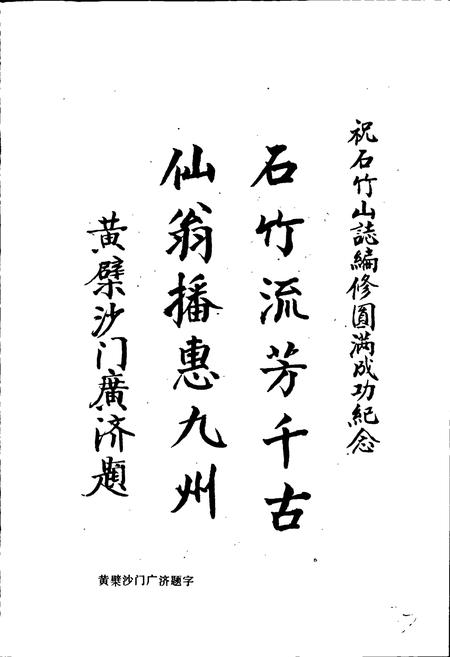 祝石竹山誌編修圓满成功紀念
石竹流芳千古
仙翁播惠九州
黄檗沙门廣济题
黄檗沙门广济题字